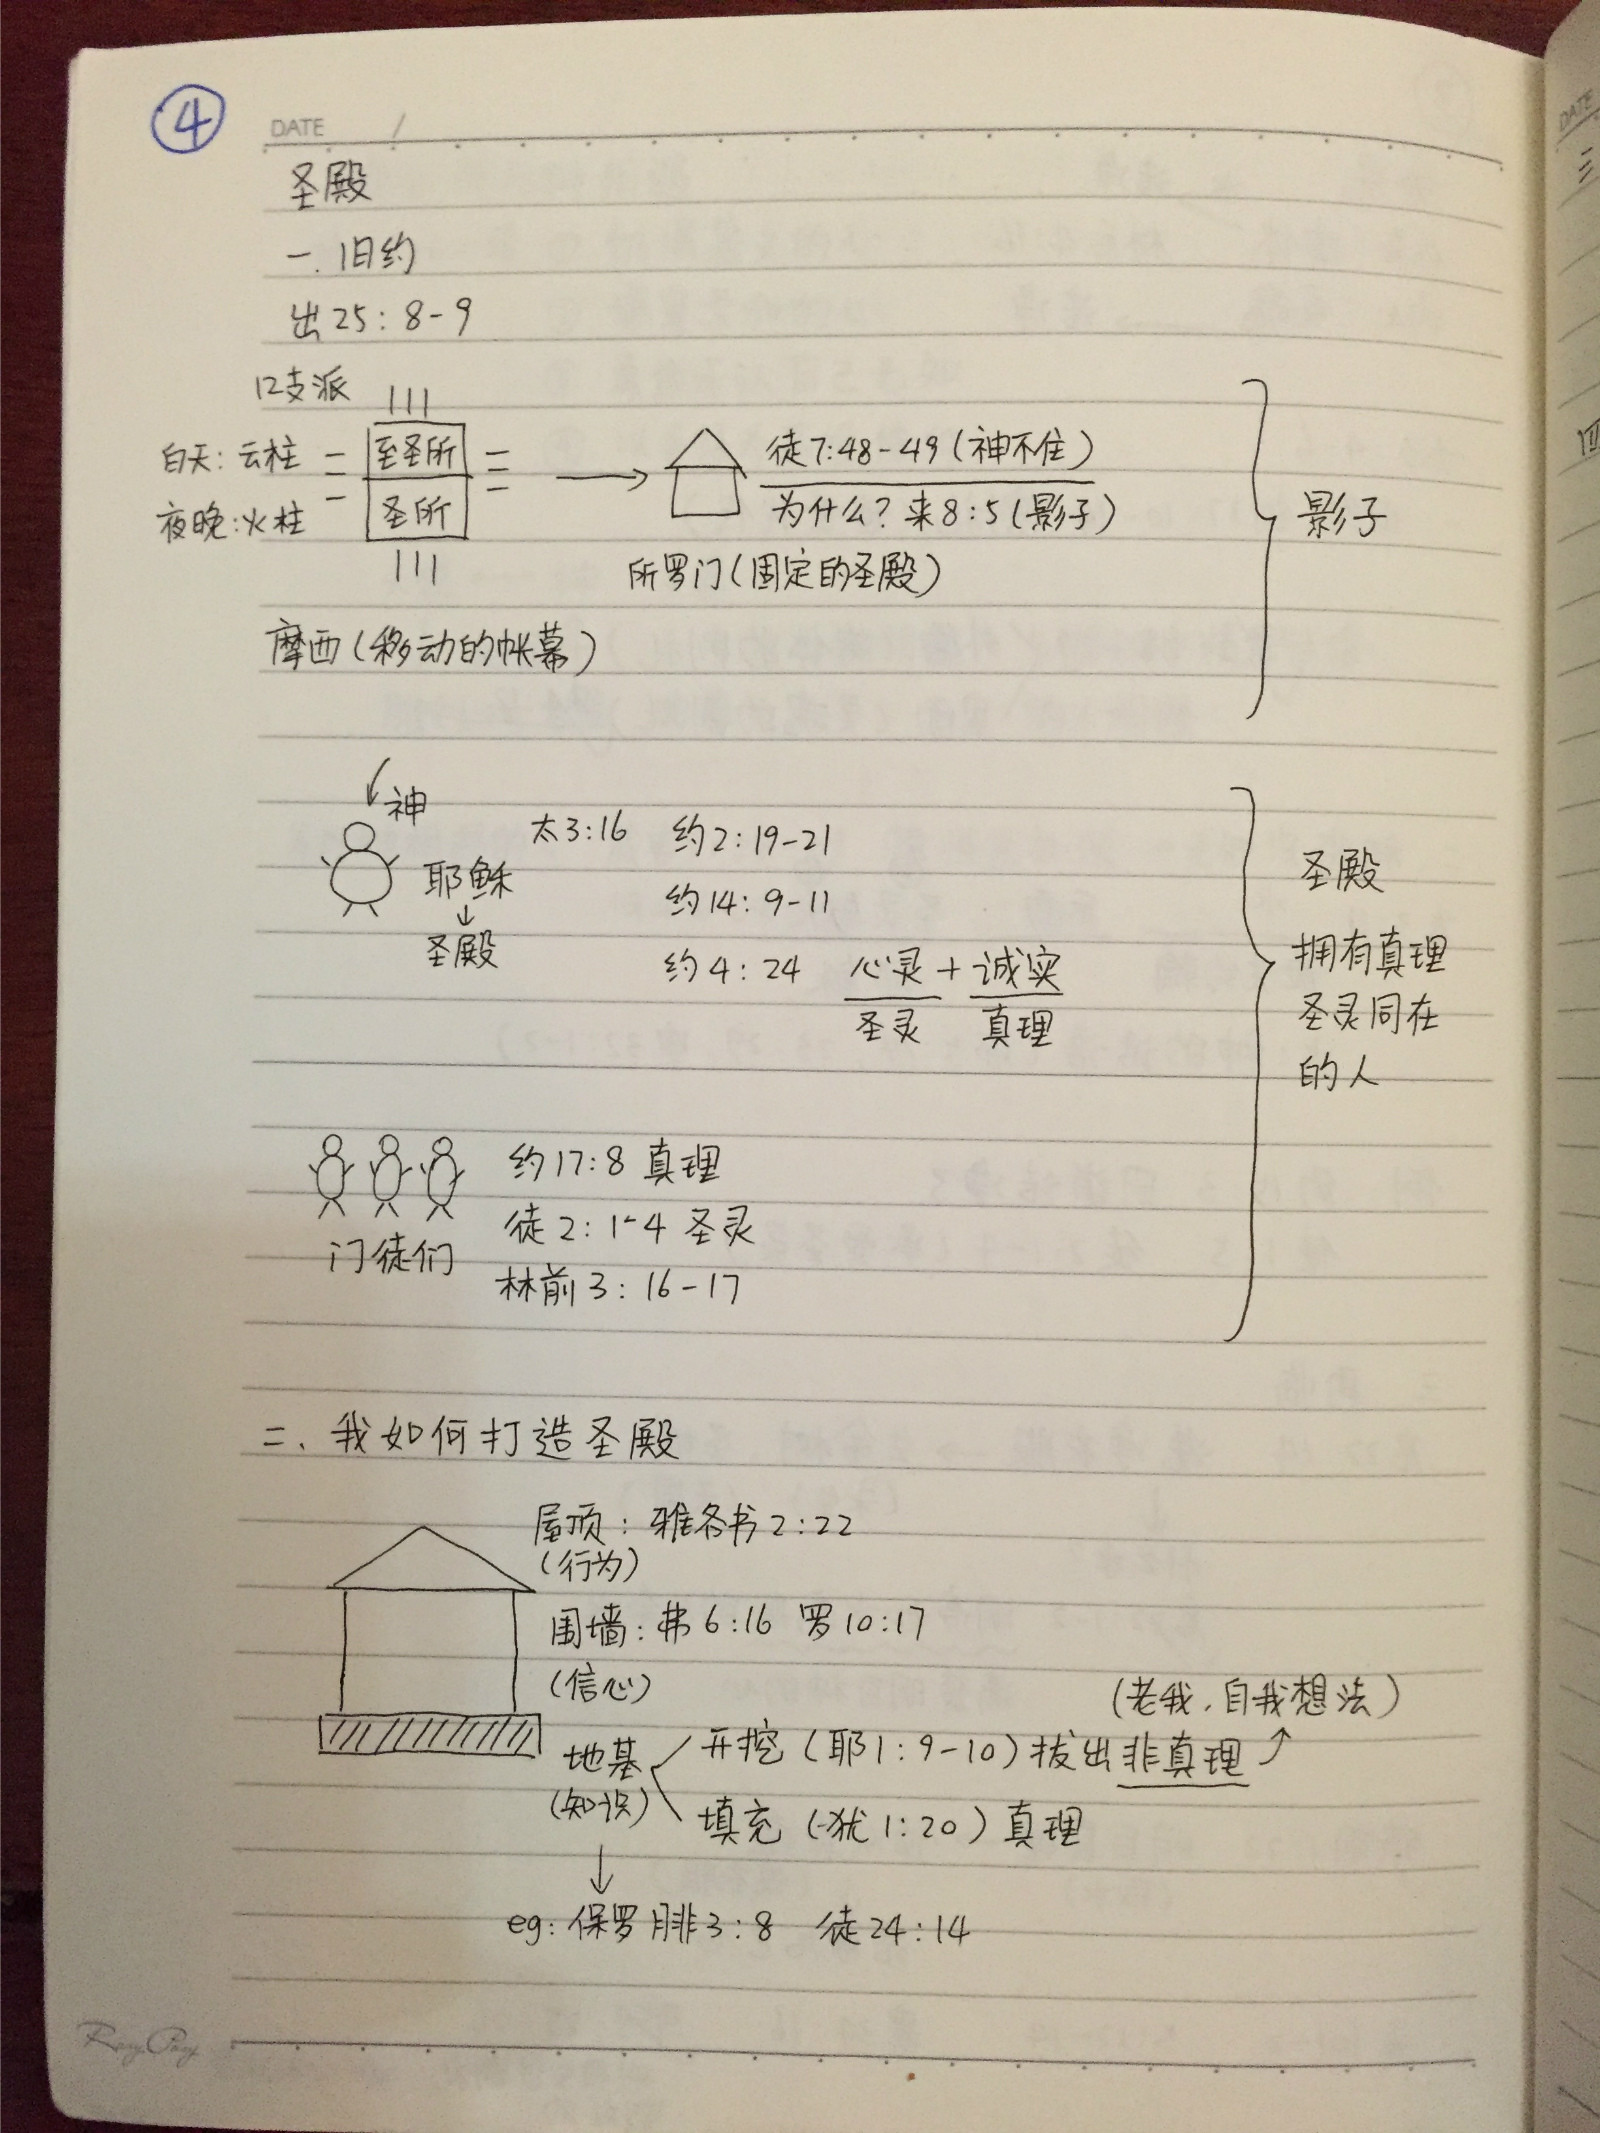 ④
DATE /
圣殿
一. 旧约
出25:8-9
12支派
白天:云柱
夜晚:火柱
至圣所
圣所
徒7:48-49(神不住)
为什么?来8:5(影子)
所罗门(固定的圣殿)
摩西(移动的帐幕)
影子
神
耶稣
↓
圣殿
太3:16 约2:19-21
约14:9-11
约4:24 心灵+诚实
圣灵 真理
圣殿
拥有真理
圣灵同在
的人
门徒们
约17:8 真理
徒2:1-4 圣灵
林前3:16-17
二、我如何打造圣殿
屋顶:雅各书2:22
(行为)
围墙:弗6:16 罗10:17
(信心)
(老我,自我想法)
地基
(知识)
开挖(耶1:9-10)拔出非真理
填充(犹1:20)真理
↓
eg:保罗腓3:8 徒24:14
DATE
三
四